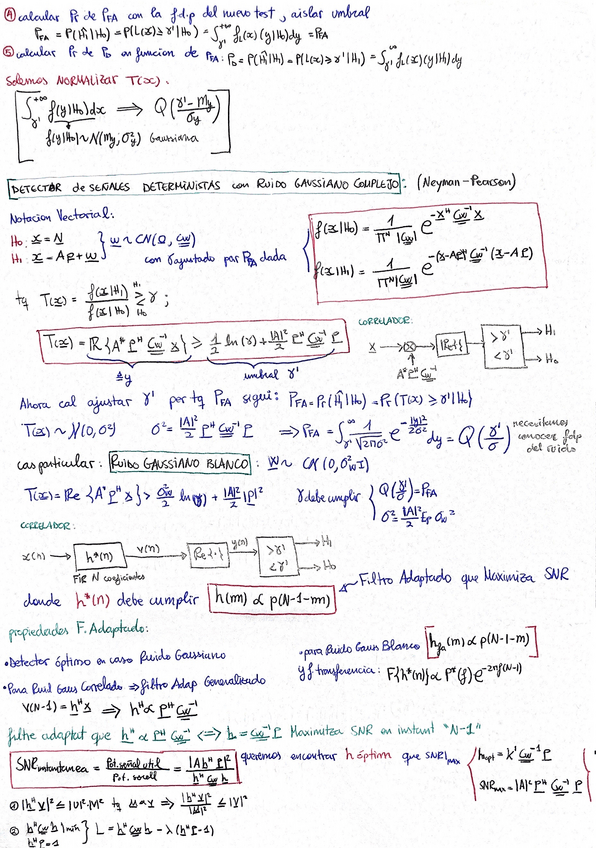 ④ calcular Pr de PFA con la f.d.p del nuevo test, aislar umbral
PFA = P(Ĥ1|H0) = P(L(x) ≥ γ'|H0) = ∫γ'^+∞ fL(x)(y|H0)dy = PFA
⑤ calcular Pr de PD en funcion de PFA: PD = P(Ĥ1|H1) = P(L(x) ≥ γ'|H1) = ∫γ'^∞ fL(x)(y|H1)dy
Solemos NORMALIZAR T(x).
∫γ'^+∞ f(y|H0)dx ⟹ Q((γ' - my)/σy)
f(y|H0) ~ N(my; σy²) Gaussiana
DETECTOR de SEÑALES DETERMINISTAS con RUIDO GAUSSIANO COMPLEJO: (Neyman-Pearson)
Notacion Vectorial:
H0: x = N
H1: x - AP + w } w ~ CN(0, Cw)
con γ ajustado por PFA dada
f(x|H0) = 1/(π^N|Cw|) e^(-x^H Cw^-1 x)
f(x|H1) = 1/(π^N|Cw|) e^(-(x-AP)^H Cw^-1 (x-AP))
tq T(x) = f(x|H1)/f(x|H0) ≷ γ ; H1 H0
T(x) = ℝ{A* P^H Cw^-1 x} ≥ 1/2 ln(γ) + |A|²/2 P^H Cw^-1 P
≜ y
umbral γ'
CORRELADOR:
x → ⊗ → Re{·} → > γ' < γ' → H1 → H0
A* P^H Cw^-1
Ahora cal ajustar γ' per tq PFA sigui: PFA = Pr(Ĥ1|H0) = Pr(T(x) ≥ γ'|H0)
T(x) ~ N(0, σ²) σ² = |A|²/2 P^H Cw^-1 P ⟹ PFA = ∫γ'^∞ 1/√(2πσ²) e^(-|y|²/2σ²) dy = Q(γ'/σ)
necesitamos conocer fdp del ruido
cas particular: RUIDO GAUSSIANO BLANCO: w ~ CN(0, σw² I)
T(x) = Re{A* P^H x} > σw²/2 ln(γ) + |A|²/2 |P|²
γ debe cumplir { Q(γ'/σ) = PFA
σ² = |A|²/2 Ep σw²
CORRELADOR:
x(n) → h*(n) → v(n) → Re{·} → y(n) → > γ' < γ' → H1 → H0
FIR N coeficientes
donde h*(n) debe cumplir h(m) ∝ p(N-1-m) Filtro Adaptado que Maximiza SNR
propiedades F. Adaptado:
• Detector óptimo en caso Ruido Gaussiano
• para Ruido Gaus Blanco hfa(m) ∝ p(N-1-m)
y f transferencia: F{h*(n)} ∝ P*(f) e^(-2πf(N-1))
• Para Ruid Gaus Correlado ⟹ filtro Adap Generalizado
v(N-1) = h^H x ⟹ h^H ∝ P^H Cw^-1
filtre adaptat que h^H ∝ P^H Cw^-1 ⟺ h = Cw^-1 P Maximitza SNR en instant "N-1"
SNR instantanea = Pot. señal util / Pot. soroll = |A h^H P|² / h^H Cw h
queremos encontrar h óptim que SNR|max
hopt = k' Cw^-1 P
SNRmax = |A|² P^H Cw^-1 P
① |h^H v|² ≤ |u|²·|v|² tq u = αv ⟹ |h^H v|²/|u|² ≤ |v|²
② h^H Cw h|min h^H P=1 } L = h^H Cw h - λ(h^H P - 1)